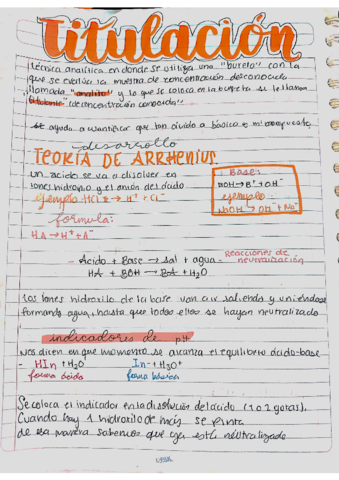 Titulación
técnica analítica en donde se utiliza una "bureta" con la
que se evalúa la muestra de concentración desconocida
llamada "analito" y lo que se coloca en la bureta se le llama
titulante (de concentración conocida)
nos ayuda a cuantificar que tan ácido o básico es mi compuesto
desarrollo
TEORÍA DE ARRHENIUS
un ácido se va a disolver en
iones hidrogeno y el anión del ácido
ejemplo: HCl → H+ + Cl-
Base:
BOH → B+ + OH-
ejemplo:
NaOH → OH- + Na+
formula:
HA → H+ + A-
Ácido + Base → sal + agua - Reacciones de
neutralización
HA + BOH → BA + H2O
Los iones hidroxilo de la base van a ir saliendo y uniendose
formando agua, hasta que todos ellos se hayan neutralizado
indicadores de pH
Nos dicen en que momento se alcanza el equilibrio ácido-base
- HIn + H2O In- + H3O+
forma ácida forma básica
Se coloca el indicador en la disolución del ácido (1 o 2 gotas).
Cuando hay 1 hidroxilo de más se pinta
de esa manera sabemos que ya está neutralizado